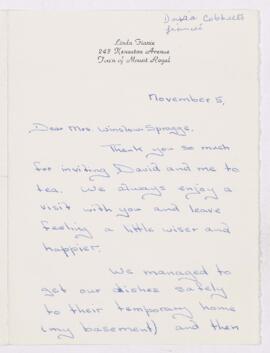 David Cobbett's
fiancée
Linda Fiske
243 Kenaston Avenue
Town of Mount Royal
November 5,
Dear Mrs. Winslow-Spragge,
Thank you so much
for inviting David and me to
tea. We always enjoy a
visit with you and leave
feeling a little wiser and
happier.
We managed to
get our dishes safely
to their temporary home
(my basement) and then